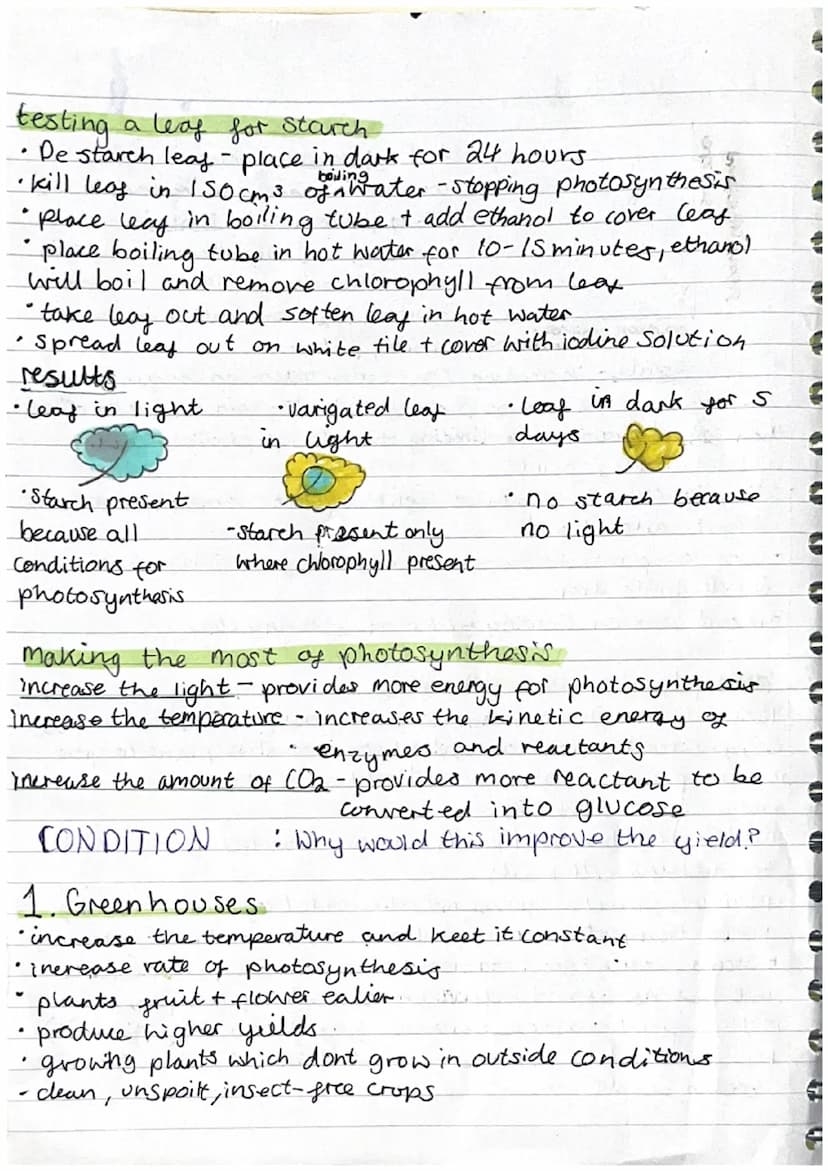 testing a leaf for starch
· De starch leaf - place in dark for 24 hours
· kill leaf in 150cm³ of boiling water - stopping photosynthesis
· place leaf in boiling tube + add ethanol to cover leaf
· place boiling tube in hot water for 10-15 minutes, ethanol
will boil and remove chlorophyll from leaf
· take leaf out and soften leaf in hot water
· spread leaf out on white tile + cover with iodine solution
results
· leaf in light · varigated leaf · leaf in dark for 5
in light days
· starch present · no starch because
because all - starch present only no light
conditions for where chlorophyll present
photosynthesis
making the most of photosynthesis
increase the light - provides more energy for photosynthesis
increase the temperature - increases the kinetic energy of
· enzymes and reactants
increase the amount of CO2 - provides more reactant to be
converted into glucose
CONDITION : Why would this improve the yield?
1. Greenhouses
· increase the temperature and keet it constant
· increase rate of photosynthesis
· plants fruit + flower ealier
· produce higher yields
· growing plants which dont grow in outside conditions
- clean, unspoilt, insect-free crops